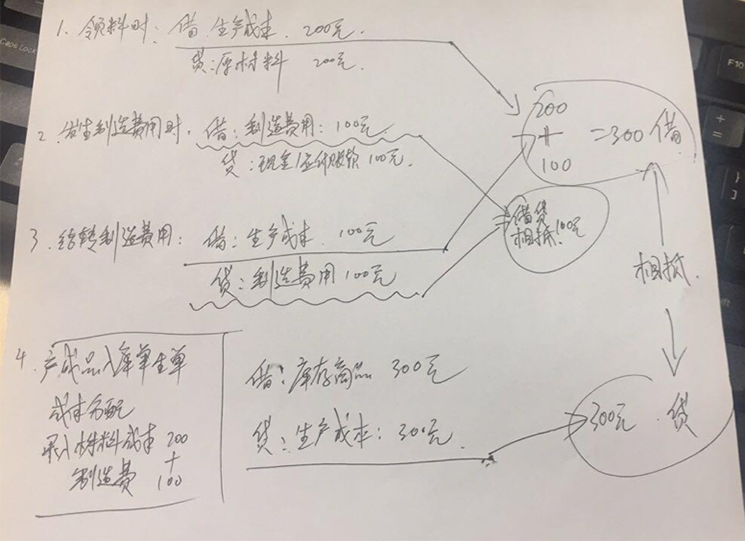 1. 领料时: 借: 生产成本 200元.
贷: 原材料 200元.
2. 发生制造费用时, 借: 制造费用: 100元.
贷: 现金/应付账款 100元.
3. 结转制造费用: 借: 生产成本 100元
贷: 制造费用 100元
4. 产成品入库单生单
成本分配
录入材料成本 200
+
制造费 100
借: 库存商品 300元
贷: 生产成本: 300元.
200
+
100
=300 借
借贷
相抵 100元
相抵.
300元. 贷
CapsLock
F10